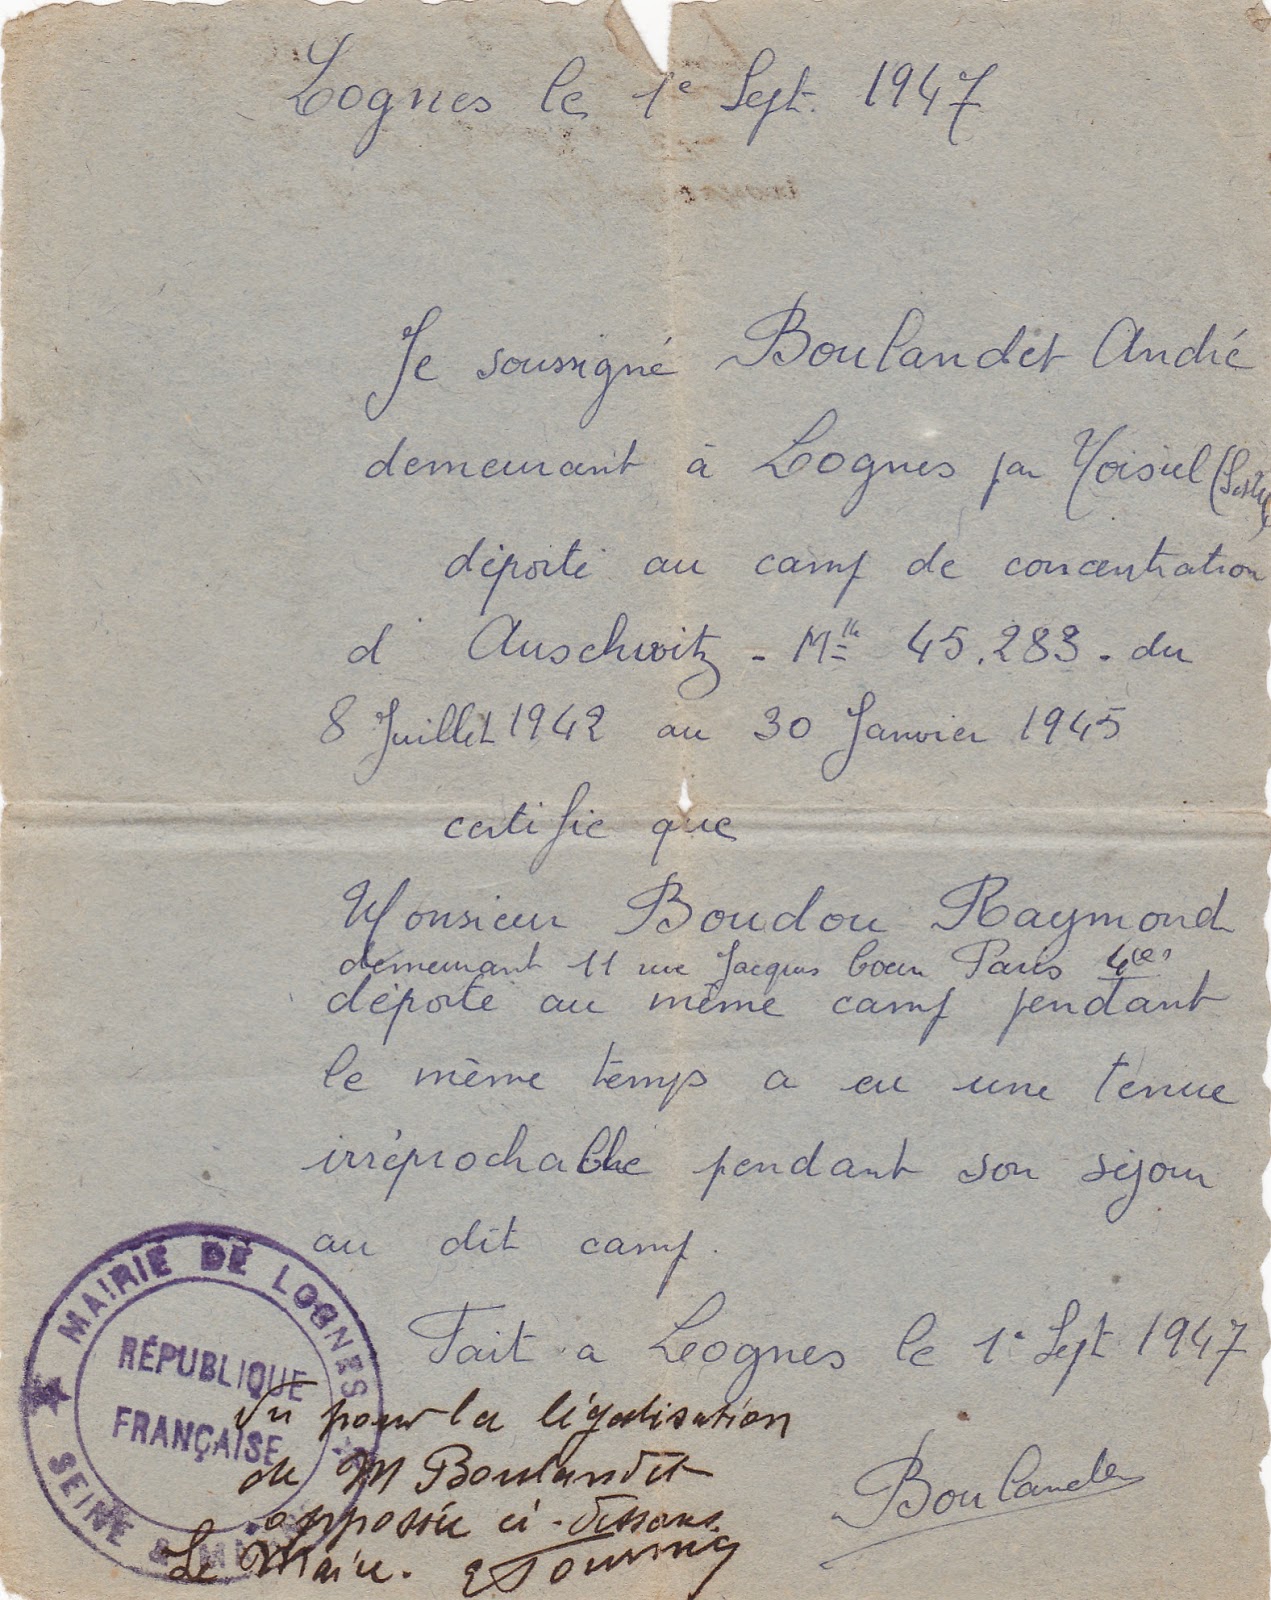 Lognes le 1e Sept. 1947
Je soussigné Boulandet André
demeurant à Lognes par Noisiel
déporté au camp de concentration
d'Auschwitz - Mle 45.283 - du
8 Juillet 1942 au 30 Janvier 1945
certifie que
Monsieur Boudou Raymond
demeurant 11 rue Jacques Coeur Paris
déporté au même camp pendant
le même temps a eu une tenue
irréprochable pendant son séjour
au dit camp.
Fait a Lognes le 1e Sept 1947
Boulandet
MAIRIE DE LOGNES
RÉPUBLIQUE
FRANÇAISE
SEINE &
Vu pour la légalisation
de M Boulandet
apposée ci-dessous
Le Maire.